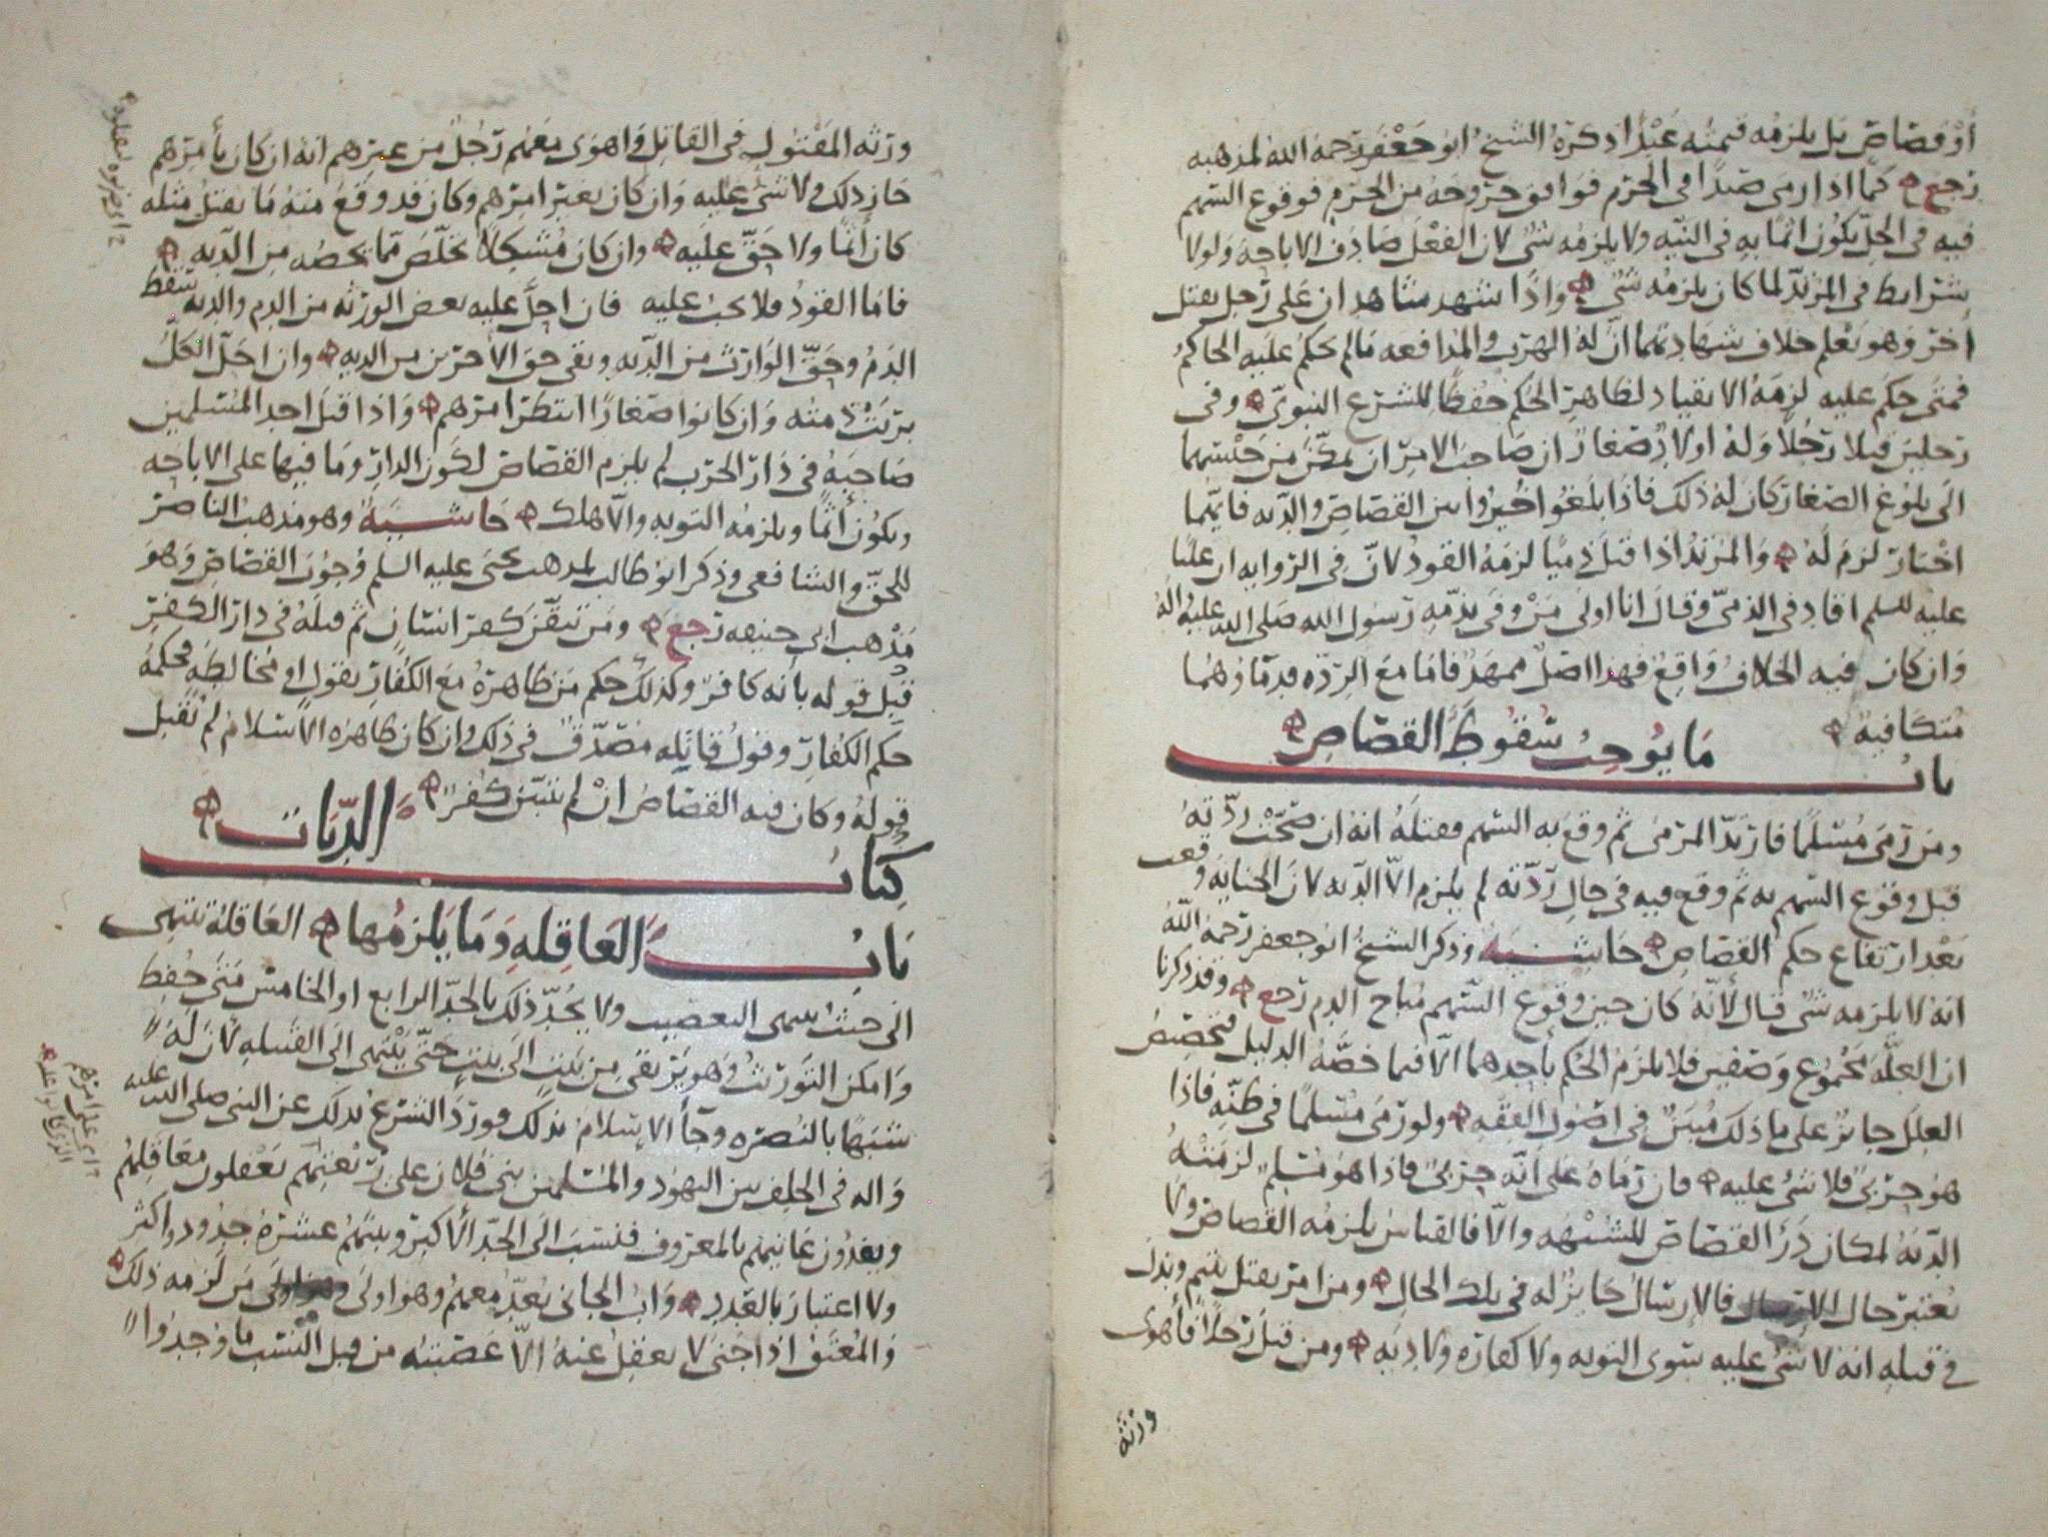 أو قصاص بل يلزمه قيمته عبدًا ذكره الشيخ أبو جعفر رحمه الله لمذهبه
رجع كما اذا رمى صيدًا في الحرم فوافق خروجه من الحرم فوقوع السهم
فيه في الحل يكون اثمًا به في النيه ولا يلزمه شئ لان الفعل صادف الاباحه ولولا
شرايط في المرتد لما كان يلزمه شئ واذا شهد شاهدان على رجل بقتل
اخر وهو يعلم خلاف شهادتهما ان له الهرب والمدافعه ما لم يحكم عليه الحاكم
فمتى حكم عليه لزمه الانقياد لظاهر الحكم حفظًا للشرع النبوي وفي
رجلين قتلا رجلا وله اولاد صغار ان صاحب الامر ان تمكن من حبسهما
الى بلوغ الصغار كان له ذلك فاذا بلغوا خيروا بين القصاص والديه فايهما
اختار لزم له والمرتد اذا قتل ذميًا لزمه القود لان في الروايه ان عليًا
عليه السلم اقاد في الذمي وقال انا اولى من وفى بذمه رسول الله صلى الله عليه واله
وان كان فيه الخلاف واقع فهذا اصل ممهد فاما مع الرده فدماؤهما
متكافيه
باب ما يوجب سقوط القصاص
ومن رمى مسلمًا فارتد المرمى ثم وقع به السهم فقتله انه ان صحت ردته
قبل وقوع السهم به ثم وقع فيه في حال ردته لم يلزم الا الديه لان الجنايه وقعت
بعد ارتفاع حكم القصاص حاشيه وذكر الشيخ ابو جعفر رحمه الله
انه لا يلزمه شئ قال لانه كان حين وقوع السهم مباح الدم رجع وقد ذكرنا
ان العله مجموع وصفين فلا يلزم الحكم باحدهما الا فيما خصه الدليل فتخصيص
العلل جايز على ما ذلك مبين في اصول الفقه ولو رمى مسلمًا في ظنه فاذا
هو حربي فلا شئ عليه فان رماه على انه حربي فاذا هو مسلم لزمته
الديه لمكان درأ القصاص للشبهه والا فالقياس يلزمه القصاص ولا
يعتبر حال الارسال فالارسال جايز له في تلك الحال ومن امر بقتل يتيم
في قتله انه لا شئ عليه سوى التوبه ولا كفاره ولا ديه ومن قتل رجلًا فأهوى
ورثه
ورثه المقتول في القاتل واهوى معهم رجل من غيرهم انه ان كان بأمرهم
جاز ذلك ولا شئ عليه وان كان بغير امرهم وكان قد وقع منه ما يقتل مثله
كان اثمًا ولا حق عليه وان كان مشكلًا تخلص مما يخصه من الديه
فاما القود فلا يجب عليه فان احل عليه بعض الورثه من الدم والديه سقط
الدم وحق الوارث من الديه وبقى حق الاخرين من الديه وان احل الكل
برئت ذمته وان كانوا صغارًا انتظر امرهم واذا قتل احد المسلمين
صاحبه في دار الحرب لم يلزم القصاص لكون الدار وما فيها على الاباحه
ويكون اثمًا ويلزمه التوبه والا هلك حاشيه وهو مذهب الناصر
للحق والشافعي وذكر ابو طالب لمذهب يحيى عليه السلم وجوب القصاص وهو
مذهب ابي حنيفه رجع ومن تيقن كفر انسان ثم قتله في دار الكفر
قبل قوله بأنه كافر وكذلك حكم من ظاهره مع الكفار بقول او مخالطه فحكمه
حكم الكفار وقول قاتله مصدق في ذلك وان كان ظاهره الاسلام لم نقبل
قوله وكان فيه القصاص ان لم يتبين كفر
كتاب الديات
باب العاقله وما يلزمها العاقله تنتهى
الى حيث ينتهى التعصيب ولا يحد ذلك بالجد الرابع او الخامس متى حفظ
وامكن التوريث وهو يرتقى من بيت الى بيت حتى ينتهى الى القبيله لان له
شبهًا بالنصره وجأ الاسلام بذلك وورد الشرع بذلك عن النبي صلى الله عليه
واله في الحلف بين اليهود والمسلمين بنى فلان على ربعتهم يعقلون معاقلهم
ويفدون عانيهم بالمعروف فنسب الى الجد الاكبر وبينهم عشره جدود واكثر
ولا اعتبار بالقدر واب الجاني يعد معهم وهو اولى من لزمه ذلك
والمعتق اذا جنى لا يعقل عنه الا عصبته من قبل النسب ما وجدوا